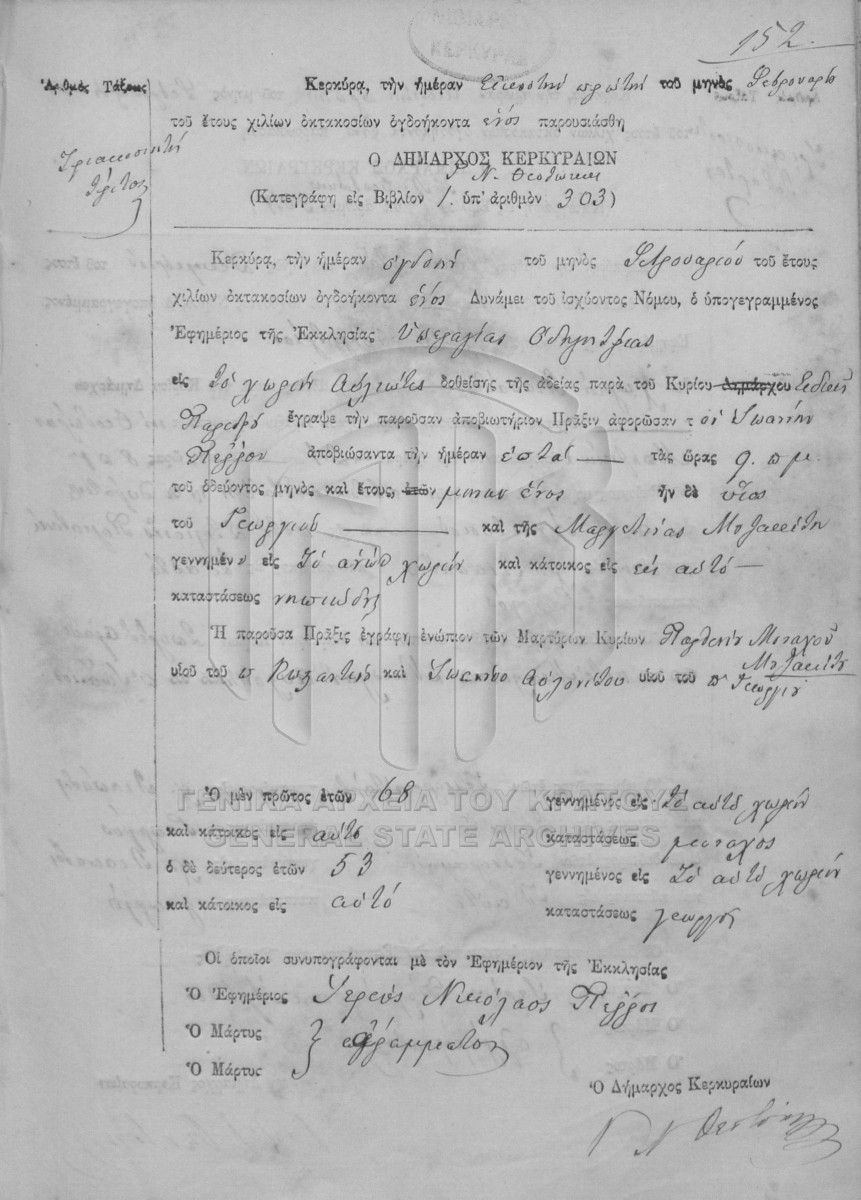 152.
Ἀριθμὸς Τάξεως
Τριακοσιοστὴ
τρίτος
Κερκύρᾳ, τὴν ἡμέραν εἰκοστὴν πρώτην τοῦ μηνὸς Φεβρουαρίου
τοῦ ἔτους χιλίων ὀκτακοσίων ὀγδοήκοντα ἑνὸς παρουσιάσθη
Ο ΔΗΜΑΡΧΟΣ ΚΕΡΚΥΡΑΙΩΝ
Γ. Ν. Θεοτόκης
(Κατεγράφη εἰς Βιβλίον 1. ὑπ' ἀριθμὸν 303)
Κερκύρᾳ, τὴν ἡμέραν ὀγδοὴν τοῦ μηνὸς Φεβρουαρίου τοῦ ἔτους
χιλίων ὀκτακοσίων ὀγδοήκοντα ἑνὸς Δυνάμει τοῦ ἰσχύοντος Νόμου, ὁ ὑπογεγραμμένος
Ἐφημέριος τῆς Ἐκκλησίας Ὑπεραγίας Οδηγητρίας
εἰς τὸ χωρίον Αὐλιώτες δοθείσης τῆς ἀδείας παρὰ τοῦ Κυρίου Δημάρχου Εἰδικοῦ
Παρέδρου ἔγραψε τὴν παροῦσαν ἀποβιωτήριον Πρᾶξιν ἀφορῶσαν τ ὸν Ἰωάννην
Πέρρον ἀποβιώσαντα τὴν ἡμέραν ἑπτα τὰς ὥρας 9. π μ.
τοῦ ὁδεύοντος μηνὸς καὶ ἔτους, ἐτῶν μηνῶν ἑνὸς ἦν δὲ υἱὸς
τοῦ Γεωργίου καὶ τῆς Μαργετίνας Μπασσίτη
γεννημένον εἰς τὸ ἄνω χωρίον καὶ κάτοικος εἰς εἰς αὐτὸ
καταστάσεως νηπιώδης
Ἡ παροῦσα Πρᾶξις ἐγράφη ἐνώπιον τῶν Μαρτύρων Κυρίων Παρθενίου Μοναχοῦ
Μπασσίτη
υἱοῦ τοῦ π Κυζαντῆ καὶ Ἰωάννου Αὐλονίτου υἱοῦ τοῦ π Γεωργίου
Ὁ μὲν πρῶτος ἐτῶν 68 γεννημένος εἰς τὸ αὐτὸ χωρίον
καὶ κάτοικος εἰς αὐτὸ καταστάσεως μοναχὸς
ὁ δὲ δεύτερος ἐτῶν 53 γεννημένος εἰς τὸ αὐτὸ χωρίον
καὶ κάτοικος εἰς αὐτό καταστάσεως γεωργὸς
Οἱ ὁποῖοι συνυπογράφονται μὲ τὸν Ἐφημέριον τῆς Ἐκκλησίας
Ὁ Ἐφημέριος Ἱερεὺς Νικόλαος Πέρρος
Ὁ Μάρτυς
Ὁ Μάρτυς
ἀγράμματοι
Ὁ Δήμαρχος Κερκυραίων
Γ Ν Θεοτόκης
ΓΕΝΙΚΑ ΑΡΧΕΙΑ ΤΟΥ ΚΡΑΤΟΥΣ
GENERAL STATE ARCHIVES